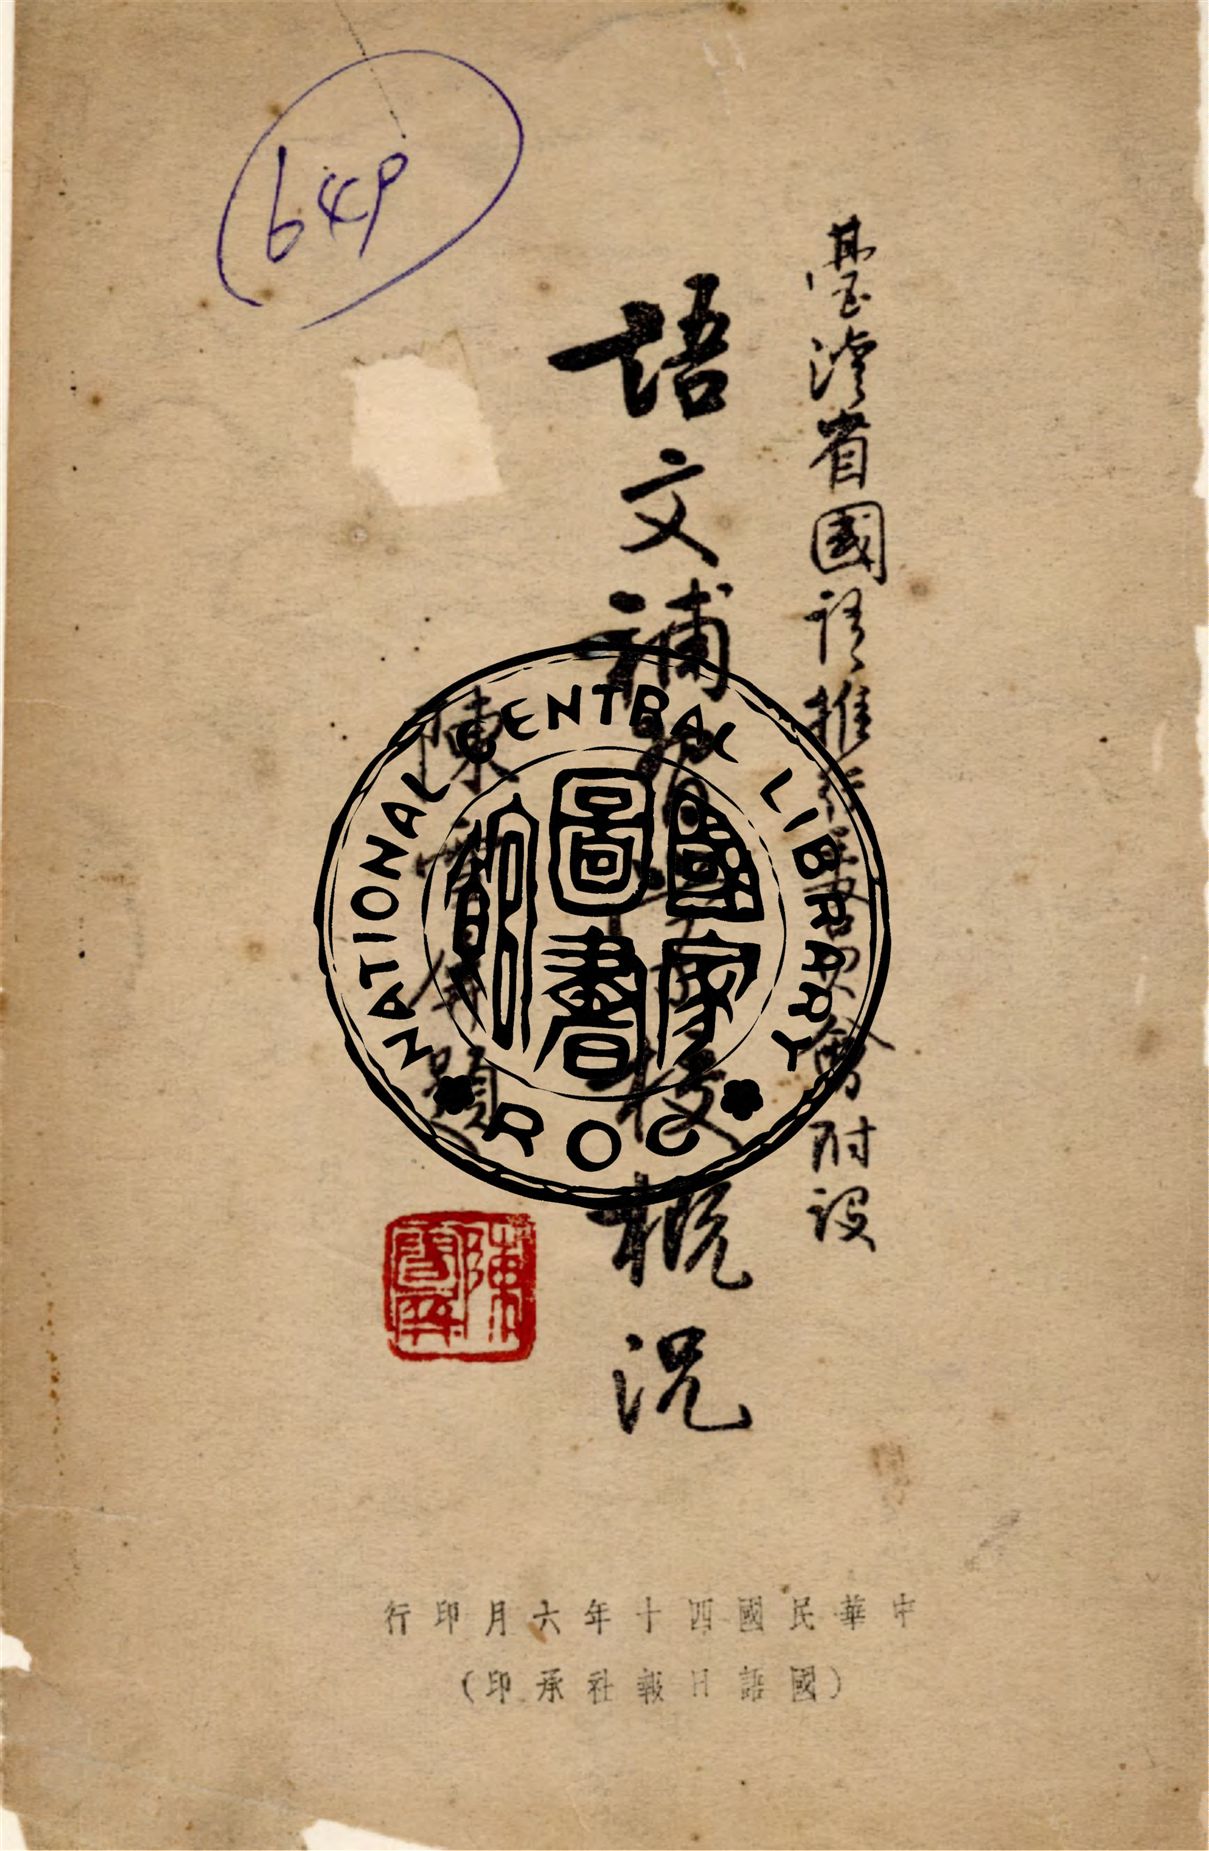 649
臺灣省國語推行委員會附設
語文補習學校概況
陳雪屏題
陳雪屏
NATIONAL CENTRAL LIBRARY
國家圖書館
ROC
中華民國四十年六月印行
（國語日報社承印）